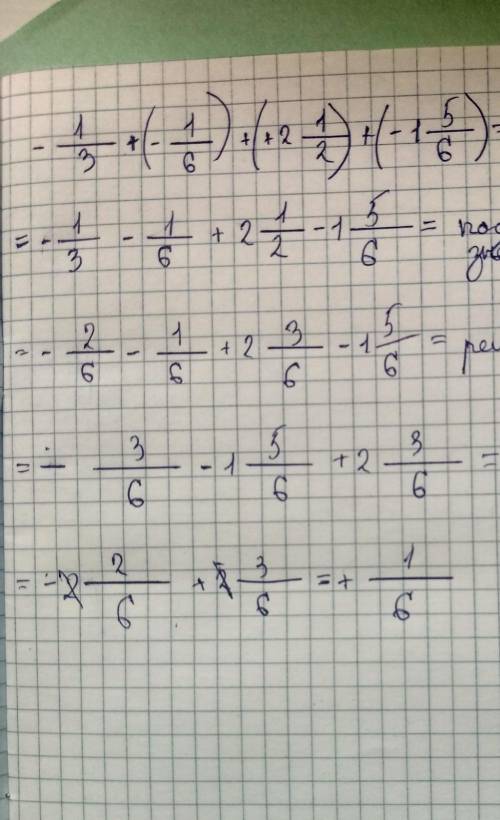 - 1/3 + (- 1/6) + (+2 1/2) + (-1 5/6) =
= - 1/3 - 1/6 + 2 1/2 - 1 5/6 =
= - 2/6 - 1/6 + 2 3/6 - 1 5/6 =
= - 3/6 - 1 5/6 + 2 3/6 =
= - 2 2/6 + 2 3/6 = + 1/6